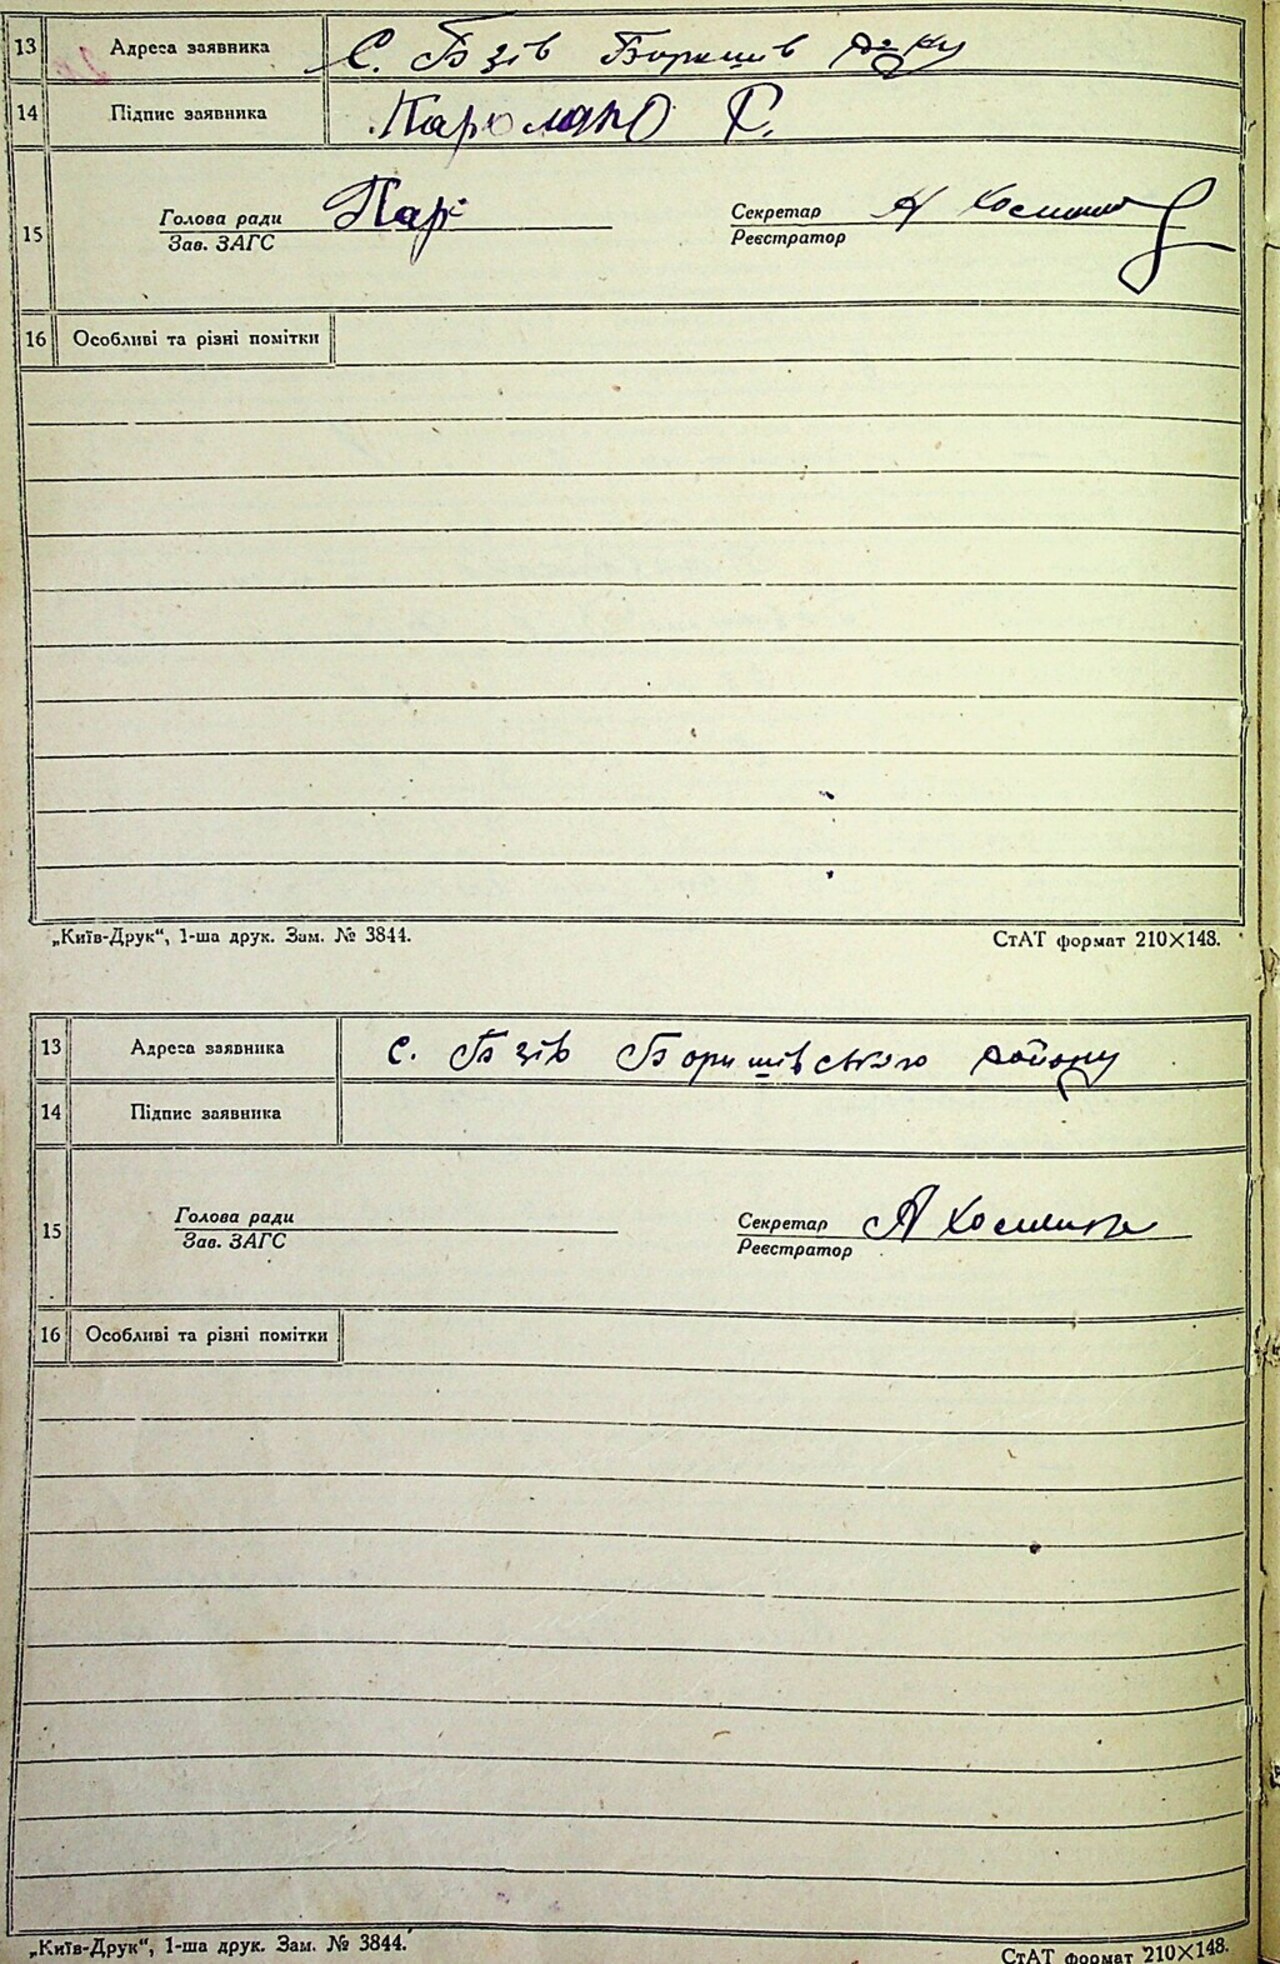 13 Адреса заявника С. Бзів Боришів р-ну
14 Підпис заявника
15 Голова ради Пар Секретар А
Зав. ЗАГС Реєстратор
16 Особливі та різні помітки
„Київ-Друк“, 1-ша друк. Зам. № 3844. СтАТ формат 210×148.
13 Адреса заявника с. Бзів Боришівського району
14 Підпис заявника
15 Голова ради Секретар А
Зав. ЗАГС Реєстратор
16 Особливі та різні помітки
„Київ-Друк“, 1-ша друк. Зам. № 3844. СтАТ формат 210×148.